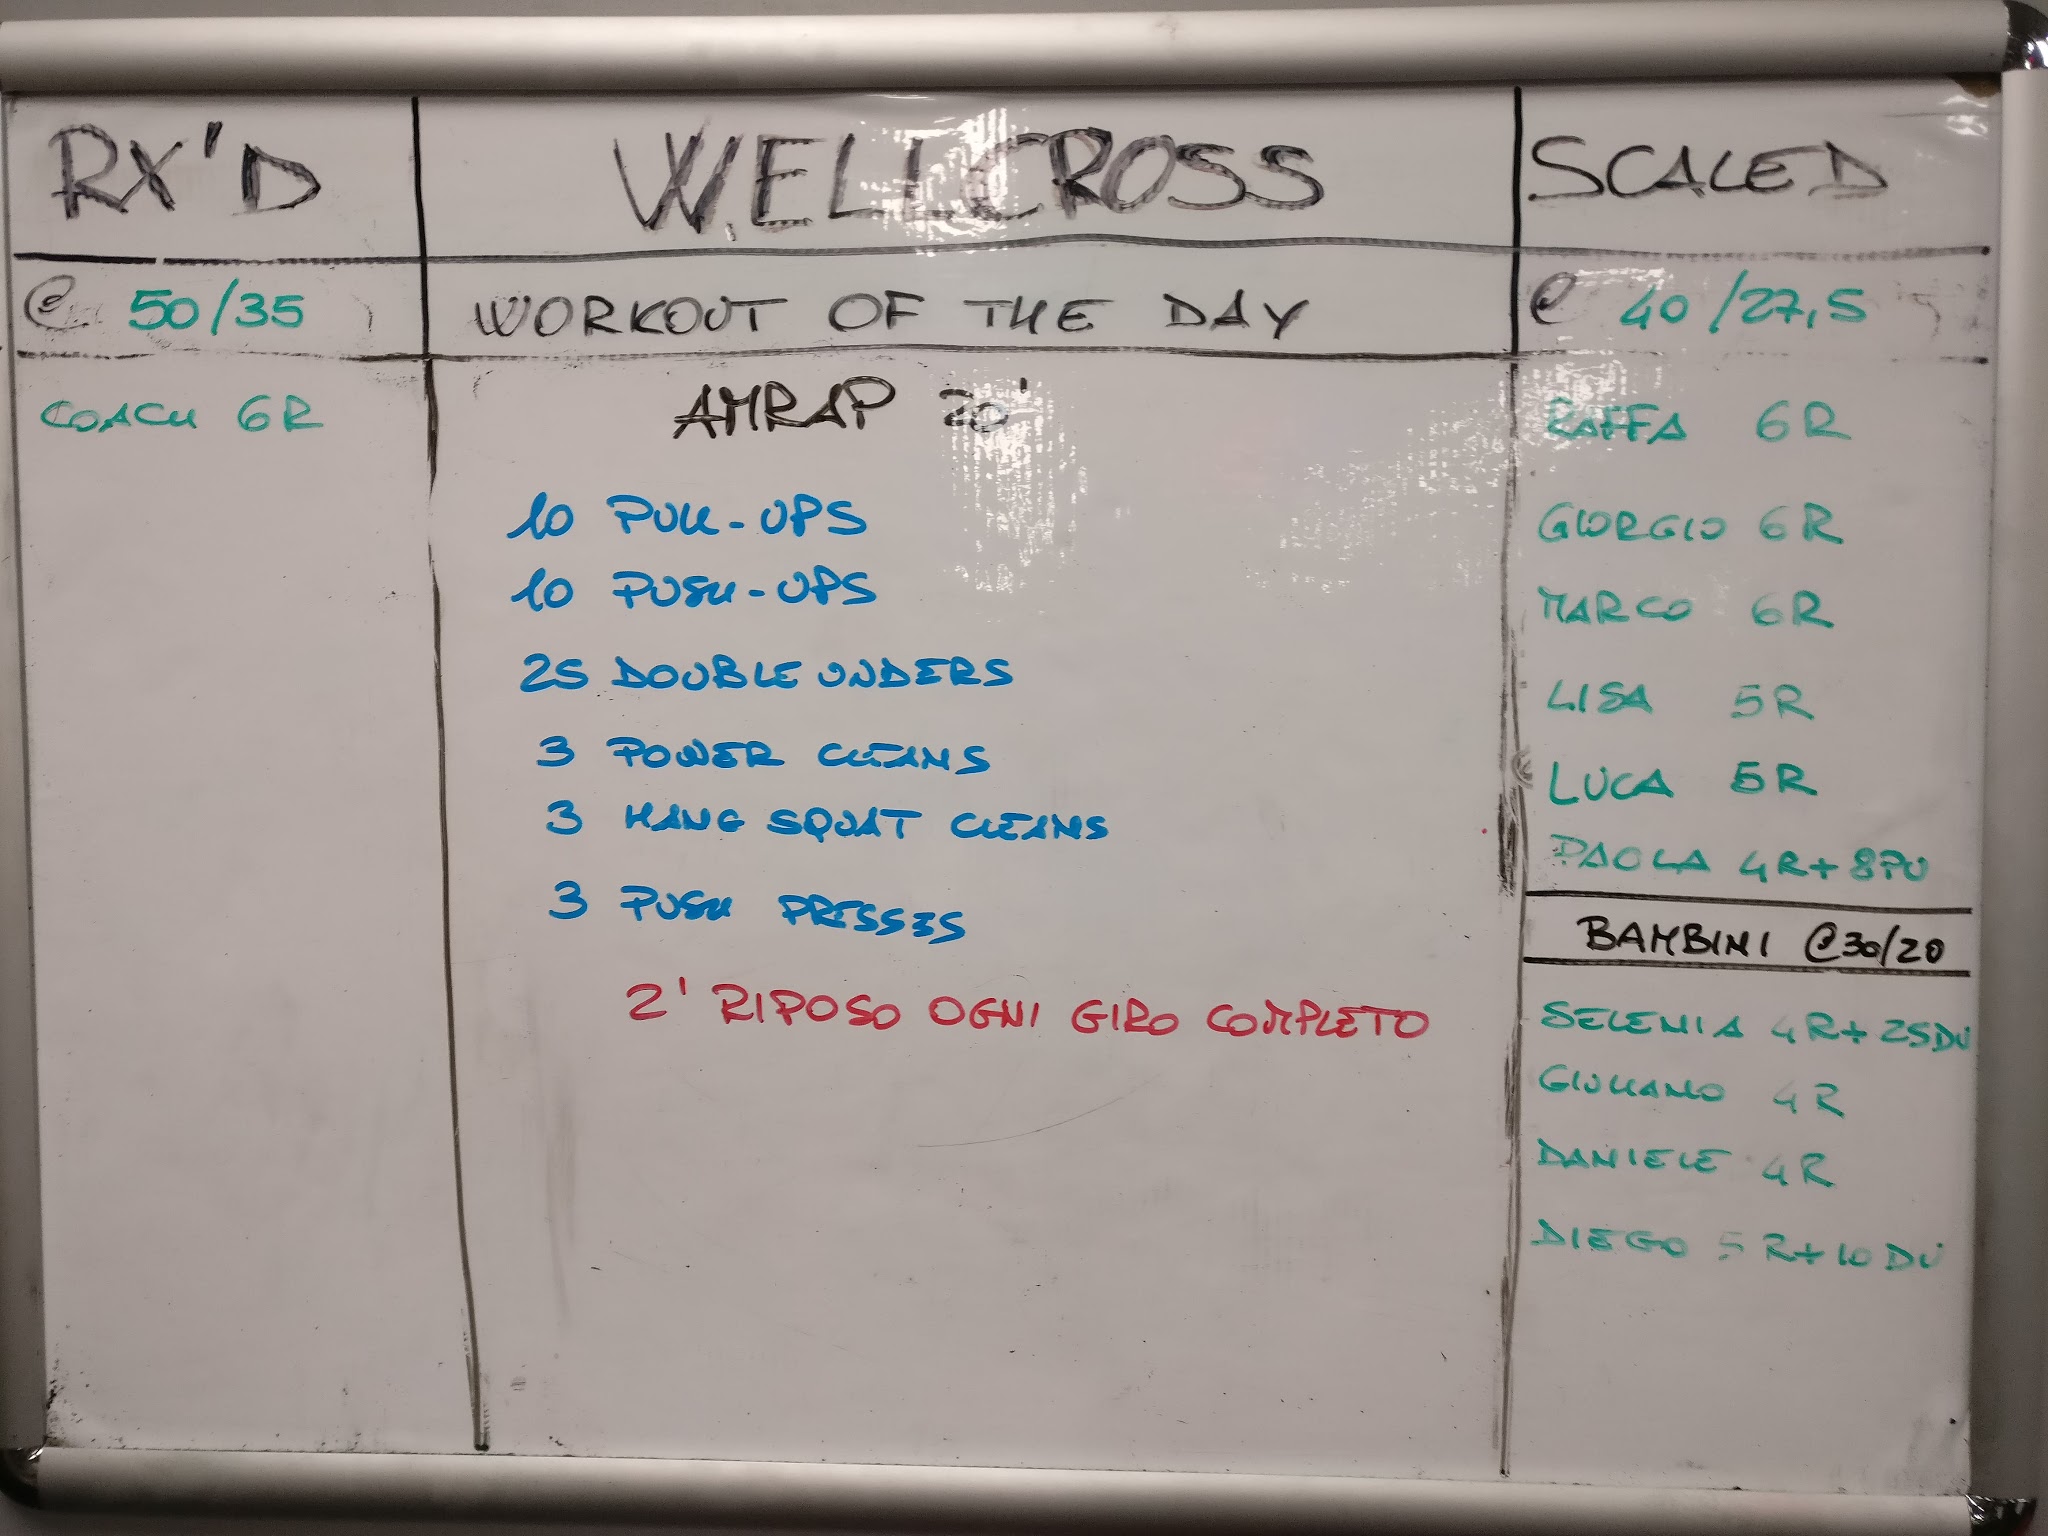 RX'D
@ 50/35
COACH 6R
WELLCROSS
WORKOUT OF THE DAY
AMRAP 20'
10 PULL-UPS
10 PUSH-UPS
25 DOUBLE UNDERS
3 POWER CLEANS
3 HANG SQUAT CLEANS
3 PUSH PRESSES
2' RIPOSO OGNI GIRO COMPLETO
SCALED
@ 40/27,5
RAFFA 6R
GIORGIO 6R
MARCO 6R
LISA 5R
LUCA 5R
PAOLA 4R+8PU
BAMBINI @30/20
SELENIA 4R+25DU
GIULIANO 4R
DANIELE 4R
DIEGO 5R+10DU